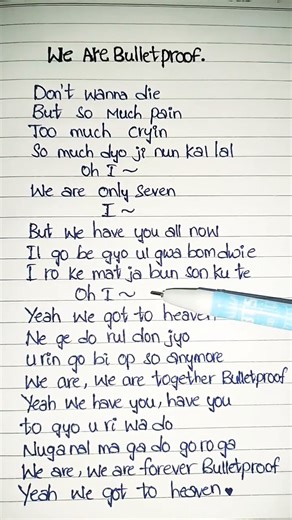 We Are Bulletproof.
Don't Wanna die
But so Much pain
Too much Cryin
So much dyo ji nun Kal lal
Oh I ~
We are only Seven
I ~
But We have you all now
Il go be gyo ul gwa bom dwie
I ro ke mat ja bun son ku te
Oh I ~
Yeah We got to heaven
Ne ge do rul don jyo
u rin go bi op so anymore
We are, We are together Bulletproof
Yeah We have you, have you
to gyo u ri wa do
Nuga nal ma ga do go ro ga
We are, We are forever Bulletproof
Yeah We got to heaven